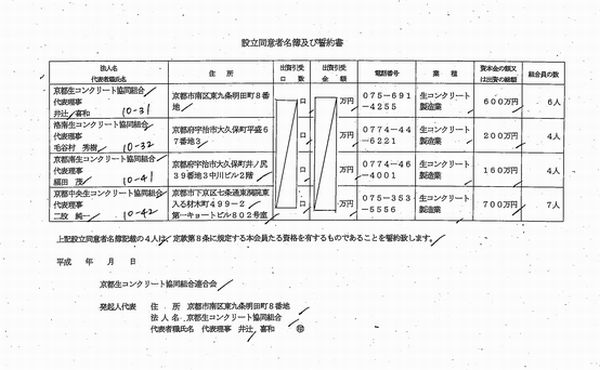 設立同意者名簿及び誓約書
法人名
代表者職氏名
住所
出資引受
口数
出資引受
金額
電話番号
業種
資本金の額又
は出資の総額
組合員の数
京都生コンクリート協同組合
代表理事
井辻 喜和 10-31
京都市南区東九条明田町8番
地
口
万円
075-691
-4255
生コンクリート
製造業
600万円
6人
洛南生コンクリート協同組合
代表理事
毛谷村 秀樹 10-32
京都府宇治市大久保町平盛6
7番地3
口
万円
0774-44
-6221
生コンクリート
製造業
200万円
4人
京都南生コンクリート協同組合
代表理事
福田 茂 10-41
京都府宇治市大久保町井ノ尻
39番地3中川ビル2階
口
万円
0774-46
-4001
生コンクリート
製造業
160万円
4人
京都中央生コンクリート協同組合
代表理事
二改 純一 10-42
京都市下京区七条通東洞院東
入る材木町499-2
第一キョートビル802号室
口
万円
075-353
-5556
生コンクリート
製造業
700万円
7人
上記設立同意者名簿記載の4人は、定款第8条に規定する本会員たる資格を有するものであることを誓約致します。
平成 年 月 日
京都生コンクリート協同組合連合会
発起人代表 住所 京都市南区東九条明田町8番地
法人名 京都生コンクリート協同組合
代表者職氏名 代表理事 井辻 喜和 ㊞